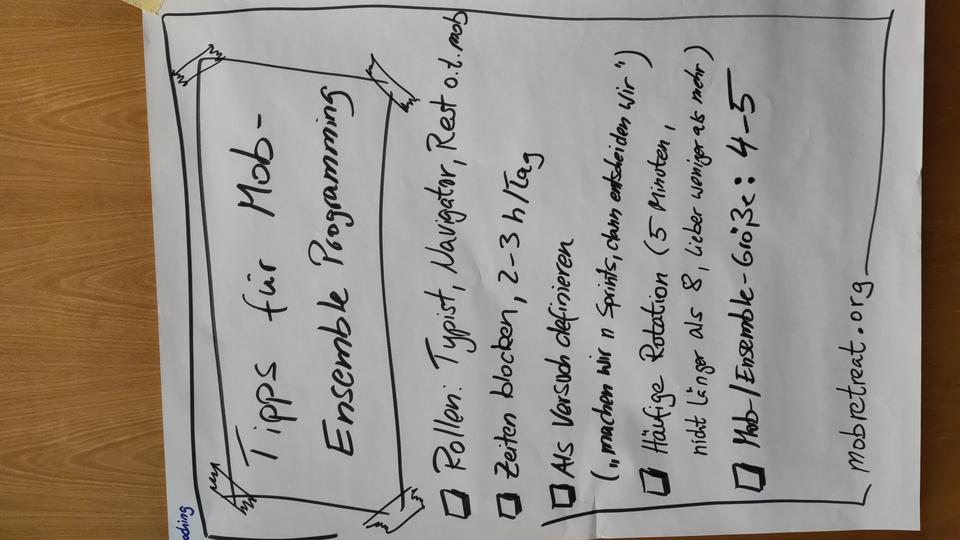 Tipps für Mob-
Ensemble Programming
Rollen: Typist, Navigator, Rest o.t. mob
Zeiten blocken, 2-3 h/Tag
Als Versuch definieren
(„machen wir n Sprints, dann entscheiden wir")
Häufige Rotation (5 Minuten,
nicht länger als 8, lieber weniger als mehr)
Mob-/Ensemble-Größe: 4-5
mobretreat.org